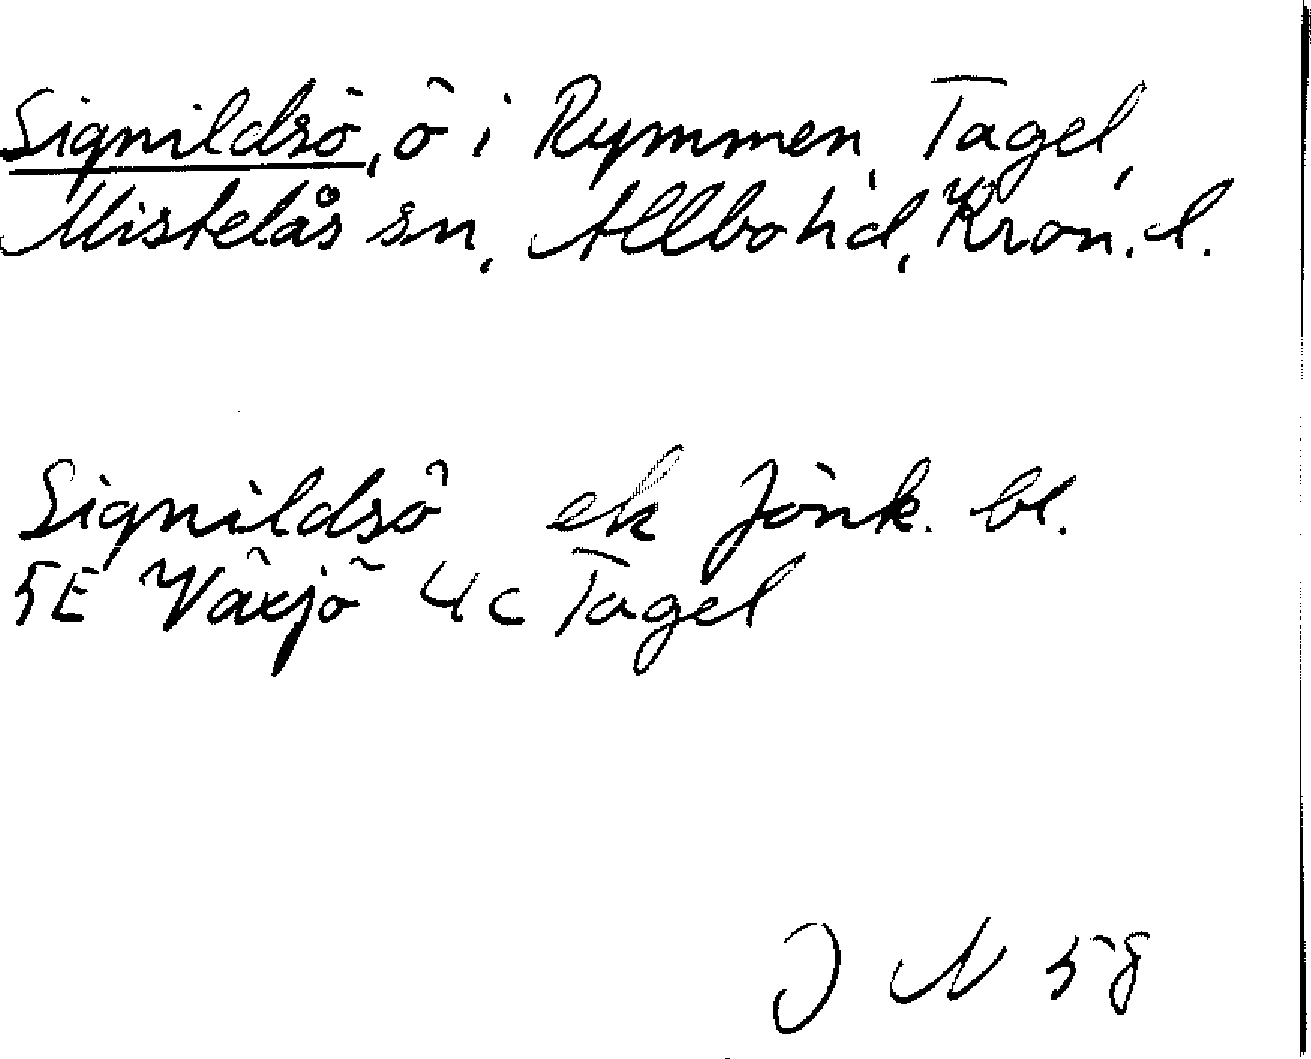 Signildsö, ö i Rymmen, Tagel,
Mistelås sn, Allbo hd, Kron. l.
Signildsö ek Jönk. bl.
5E Växjö 4c Tagel
J N 58